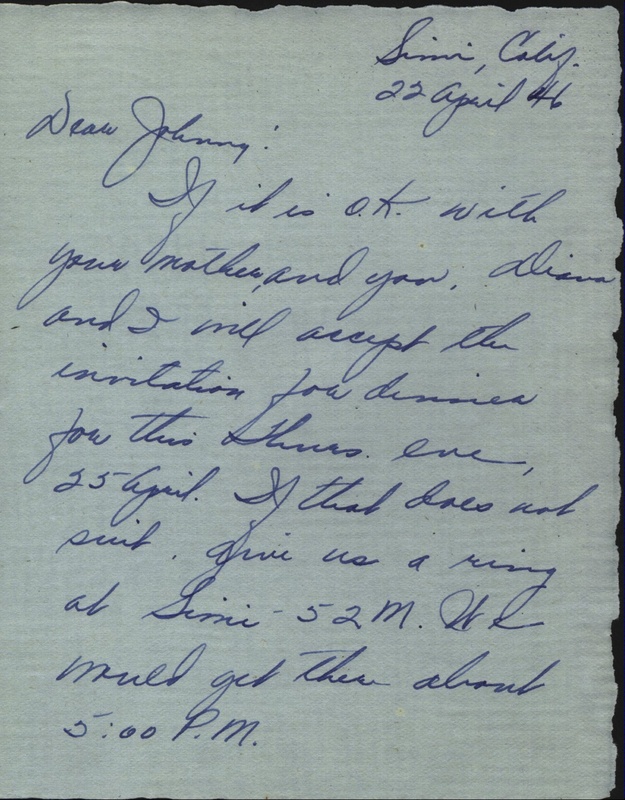 Simi, Calif.
22 April 46
Dear Johnny:
If it is O.K. with
your mother, and you, Diana
and I will accept the
invitation for dinner
for this Thurs. eve,
25 April. If that does not
suit, give us a ring
at Simi - 52M. We
would get there about
5:00 P.M.